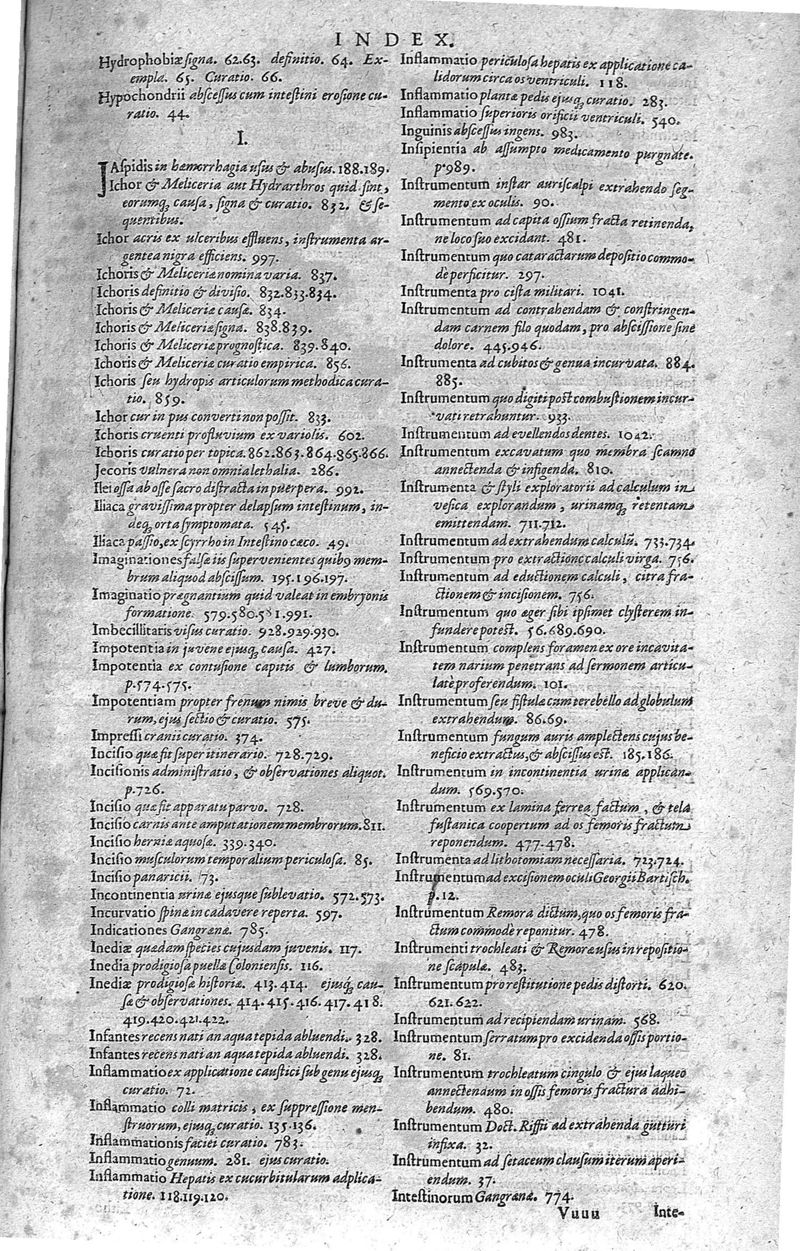 INDEX.
Hydrophobiæ signa. 62.63. definitio. 64. Ex-
empla. 65. Curatio. 66.
Hypochondrii abscessus cum intestini erosione cu-
ratio. 44.
I.
IAspidis in hæmorrhagia usus & abusus. 188.189.
Ichor & Meliceria aut Hydrarthros quid sint,
eorumq; causa, signa & curatio. 832. & se-
quentibus.
Ichor acris ex ulceribus effluens, instrumenta ar-
gentea nigra efficiens. 997.
Ichoris & Meliceriæ nomina varia. 837.
Ichoris definitio & divisio. 832.833.834.
Ichoris & Meliceriæ causæ. 834.
Ichoris & Meliceriæ signa. 838.839.
Ichoris & Meliceriæ prognostica. 839.840.
Ichoris & Meliceriæ curatio empirica. 856.
Ichoris seu hydropis articulorum methodica cura-
tio. 859.
Ichor cur in pus converti non possit. 833.
Ichoris cruenti profluvium ex variolis. 602.
Ichoris curatio per topica. 862.863.864.865.866.
Jecoris vulnera non omnia lethalia. 286.
Ilei ossa ab osse sacro distracta in puerpera. 992.
Iliaca gravissima propter delapsum intestinum, in-
deq; orta symptomata. 545.
Iliaca passio, ex scyrrho in Intestino cæco. 49.
Imaginationes falsæ iis supervenientes quib9 mem-
brum aliquod abscissum. 195.196.197.
Imaginatio prægnantium quid valeat in embryonis
formatione. 579.580.581.991.
Imbecillitatis visus curatio. 928.929.930.
Impotentia in juvene ejusq; causa. 427.
Impotentia ex contusione capitis & lumborum.
p.574.575.
Impotentiam propter frenum nimis breve & du-
rum, ejus sectio & curatio. 575.
Impressi cranii curatio. 374.
Incisio quæ fit super itinerario. 728.729.
Incisionis administratio, & observationes aliquot.
p.726.
Incisio quæ fit apparatu parvo. 728.
Incisio carnis ante amputationem membrorum. 811.
Incisio herniæ aquosæ. 339.340.
Incisio musculorum temporalium periculosa. 85.
Incisio panaricii. 73.
Incontinentia urinæ ejusque sublevatio. 572.573.
Incurvatio spinæ in cadavere reperta. 597.
Indicationes Gangrænæ. 785.
Inediæ quædam species cujusdam juvenis. 117.
Inedia prodigiosa puellæ Coloniensis. 116.
Inediæ prodigiosæ historiæ. 413.414. ejusq; cau-
sæ & observationes. 414.415.416.417.418.
419.420.421.422.
Infantes recens nati an aqua tepida abluendi. 328.
Infantes recens nati an aqua tepida abluendi. 328.
Inflammatio ex applicatione caustici sub genu ejusq;
curatio. 72.
Inflammatio colli matricis, ex suppressione men-
struorum, ejusq; curatio. 135.136.
Inflammationis faciei curatio. 783.
Inflammatio genuum. 281. ejus curatio.
Inflammatio Hepatis ex cucurbitularum adplica-
tione. 118.119.120.
Inflammatio periculosa hepatis ex applicatione ca-
lidorum circa os ventriculi. 118.
Inflammatio plantæ pedis ejusq; curatio. 283.
Inflammatio superioris orificii ventriculi. 540.
Inguinis abscessus ingens. 983.
Insipientia ab assumpto medicamento purgnate.
p.989.
Instrumentum instar auriscalpi extrahendo seg-
mento ex oculis. 90.
Instrumentum ad capita ossium fracta retinenda,
ne loco suo excidant. 481.
Instrumentum quo cataractarum depositio commo-
dè perficitur. 297.
Instrumenta pro cista militari. 1041.
Instrumentum ad contrahendam & constringen-
dam carnem filo quodam, pro abscissione sine
dolore. 445.946.
Instrumenta ad cubitos & genua incurvata. 884.
885.
Instrumentum quo digiti post combustionem incur-
vati retrahuntur. 933.
Instrumentum ad evellendos dentes. 1042.
Instrumentum excavatum quo membra scamno
annectenda & infigenda. 810.
Instrumenta & styli exploratorii ad calculum in
vesica explorandum, urinamq; retentam
emittendam. 711.712.
Instrumentum ad extrahendum calculũ. 733.734.
Instrumentum pro extractione calculi virgæ. 756.
Instrumentum ad eductionem calculi, citra fra-
ctionem & incisionem. 756.
Instrumentum quo æger sibi ipsimet clysterem in-
fundere potest. 56.689.690.
Instrumentum complens foramen ex ore in cavita-
tem narium penetrans ad sermonem articu-
latè proferendum. 101.
Instrumentum seu fistula cum terebello ad globulum
extrahendum. 86.69.
Instrumentum fungum auris amplectens cujus be-
neficio extractus, & abscissus est. 185.186.
Instrumentum in incontinentia urinæ applican-
dum. 569.570.
Instrumentum ex lamina ferrea factum, & tela
fustanica coopertum ad os femoris fractum
reponendum. 477.478.
Instrumenta ad lithotomiam necessaria. 723.724.
Instrumentum ad excisionem oculi Georgii Bartisch.
p.12.
Instrumentum Remora dictum, quo os femoris fra-
ctum commodè reponitur. 478.
Instrumenti trochleati & Remoræ usus in repositio-
ne scapulæ. 483.
Instrumentum pro restitutione pedis distorti. 620.
621.622.
Instrumentum ad recipiendam urinam. 568.
Instrumentum serratum pro excidenda ossis portio-
ne. 81.
Instrumentum trochleatum cingulo & ejus laqueo
annectendum in ossis femoris fractura adhi-
bendum. 480.
Instrumentum Doct. Riffii ad extrahenda gutturi
infixa. 32.
Instrumentum ad setaceum clausum iterum aperi-
endum. 37.
Intestinorum Gangrænæ. 774.
Vuuu Inte-